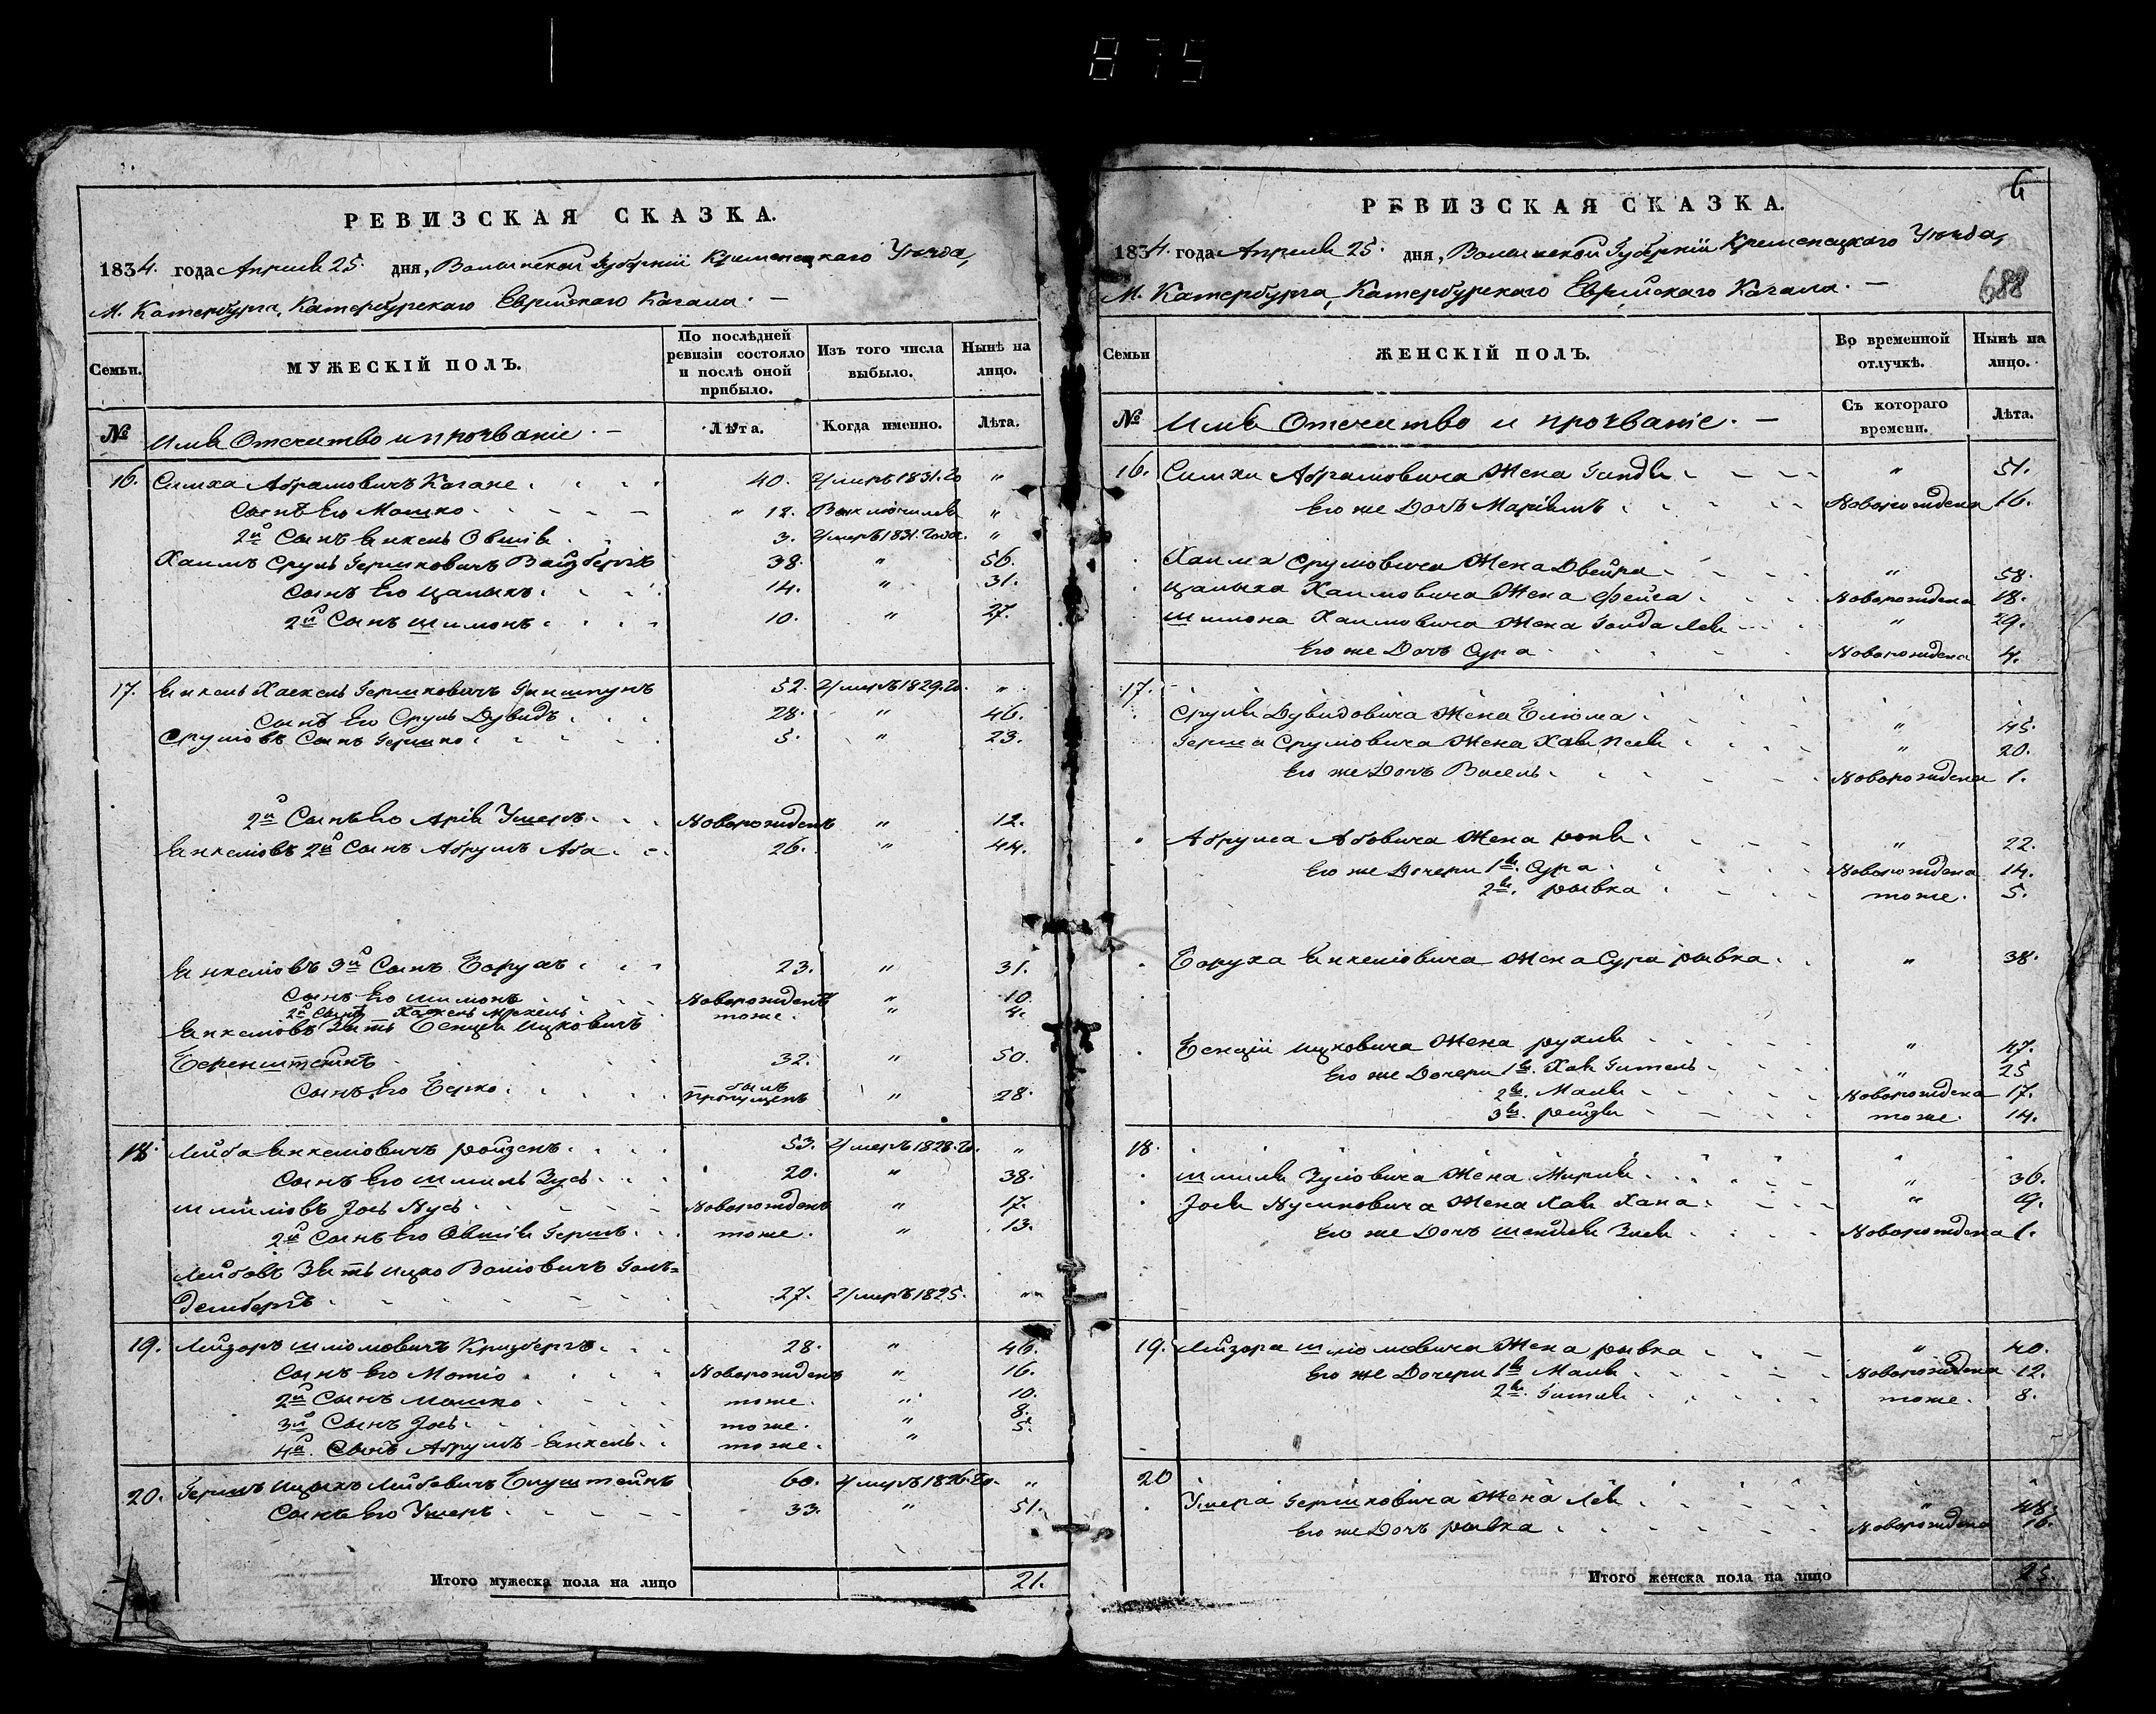 875
РЕВИЗСКАЯ СКАЗКА.
1834. года Апреля 25. дня, Волынской Губерніи Кременецкаго Уезда,
М. Катербурга, Катербурскаго Еврейскаго Кагала. —
Семьи. МУЖЕСКІЙ ПОЛЪ. По послѣдней ревизіи состояло и послѣ оной прибыло. Изъ того числа выбыло. Нынѣ на лицо.
№ Имя Отечество и прозваніе. — Лѣта. Когда именно. Лѣта.
16. Симха Абрамовичъ Кагане 40. Умеръ 1831. го "
Сынъ Его Мошко " 12. "
2й Сынъ Янкель Овшія 3. Умеръ 1831. года. "
Хаимъ Сруль Гершковичъ Вайзбергъ 38. " 56.
Сынъ Его Цалыкъ 14. " 31.
2й Сынъ Шимонъ 10. " 27.
17. Янкель Хаскель Гершковичъ 52. Умеръ 1829. го "
Сынъ Его Сруль Дувидъ 28. " 46.
Срулiовъ Сынъ Гершко 5. " 23.
2й Сынъ Его Арія Ушеръ Новорожденъ " 12.
Янкеліовъ 2й Сынъ Абрумъ Аба 26. " 44.
Янкеліовъ 3й Сынъ Борухъ 23. " 31.
Сынъ Его Шимонъ Новорожденъ " 10.
2й Сынъ Хаскель тоже. " 4.
Янкеліовъ Зять Бенція Ицковичъ
Беренштейнъ 32. " 50.
Сынъ Его Берко былъ пропущенъ " 28.
18. Лейба Янкеліовичъ Ройзенъ 53. Умеръ 1828. го "
Сынъ Его Шмиль Зусь 20. " 38.
Шмиліовъ Іось Нусь Новорожденъ " 17.
2й Сынъ Его Овшія Гершъ тоже. " 13.
Лейбовъ Зять Ицко Волiовичъ Голь=
денбергъ 27. Умеръ 1825. "
19. Лейзоръ Шліомовичъ Крузбергъ 28. " 46.
Сынъ Его Мотіо Новорожденъ " 16.
2й Сынъ Мошко тоже. " 10.
3й Сынъ Іось тоже. " 8.
4й Сынъ Абрумъ Янкель тоже. " 5.
20. Гершъ Ицыкъ Лейбовичъ 60. Умеръ 1826. го "
Сынъ Его Ушеръ 33. " 51.
Итого мужеска пола на лицо 21.
688
РЕВИЗСКАЯ СКАЗКА.
1834. года Апреля 25. дня, Волынской Губерніи Кременецкаго Уезда,
М. Катербурга, Катербурскаго Еврейскаго Кагала. —
Семьи ЖЕНСКІЙ ПОЛЪ. Во временной отлучкѣ. Нынѣ на лицо.
№ Имя Отечество и прозваніе. — Съ котораго времени. Лѣта.
16. Симхи Абрамовича Жена Гинда " 51.
Его же Дочь Маріямъ Новорождена 16.
Хаима Срулiовича Жена Двейра " 58.
Цалыка Хаимовича Жена Фейга Новорождена 18.
Шимона Хаимовича Жена Голда Лея " 29.
Его же Дочь Сура Новорождена 4.
17.
Сруля Дувидовича Жена Блюма " 45.
Герша Срулiовича Жена Хая " 20.
Его же Дочь Новорождена 1.
Абрума Абовича Жена " 22.
Его же Дочери 1я. Сура Новорождена 14.
2я. Рывка тоже. 5.
Боруха Янкеліовича Жена Сура Рывка " 38.
Бенціи Ицковича Жена Рухля " 47.
Его же Дочери 1я. Хая Гитель " 25
2я. Маля Новорождена 17.
3я. Рейзя тоже 14.
18.
Шмиля Зусіовича Жена Миріля " 36.
Іося Нусиновича Жена Хая Хана " 19.
Его же Дочь Шейдля Злея Новорождена 1.
19. Лейзора Шліомовича Жена Рывка " 40.
Его же Дочери 1я Маля Новорождена 12.
2я. Гитля тоже. 8.
20
Ушера Гершковича Жена Лея " 48.
Его же Дочь Рывка Новорождена 16.
Итого женска пола на лицо 25.